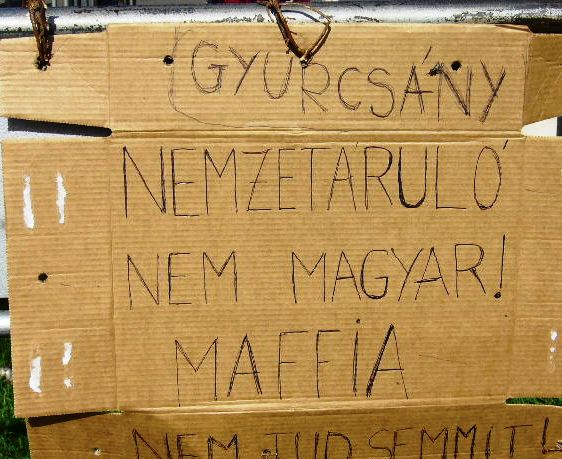 GYURCSÁNY
NEMZETÁRULÓ
NEM MAGYAR!
MAFFIA
NEM TUD SEMMIT!